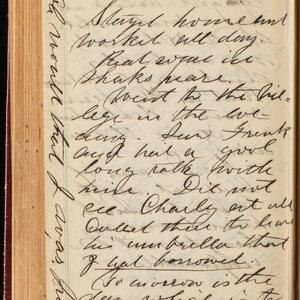 Stayed home and
worked all day.
Read some in
Shakspeare.
Went to the vil-
lege in the eve-
ning. Saw Frank
and had a good
long talk with
him. Did not
see Charly at all
Called there to leave
his umbrella that
I had borrowed.
Tomorrow is the
day which is to